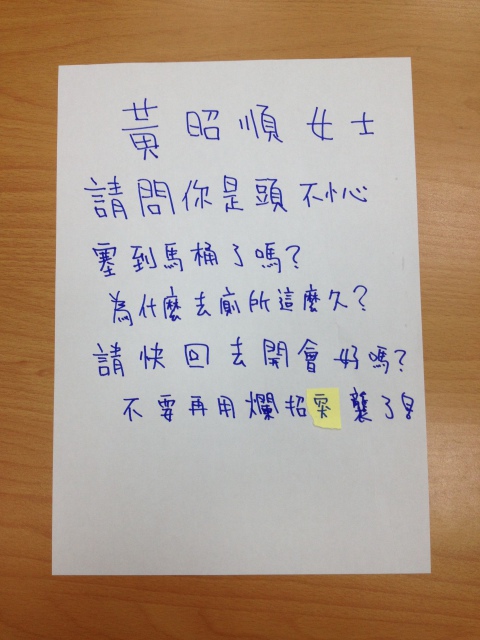 黃昭順女士
請問你是頭不小心
塞到馬桶了嗎?
為什麼去廁所這麼久?
請快回去開會好嗎?
不要再用爛招突襲了